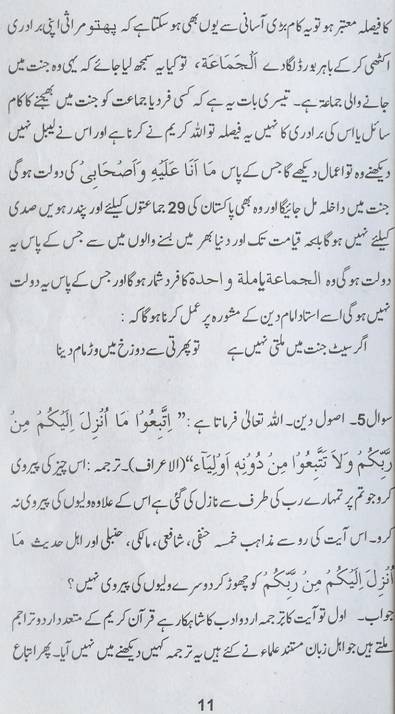 کا فیصلہ معتبر ہو تو یہ کام بڑی آسانی سے یوں بھی ہو سکتا ہے کہ پھتو مراثی اپنی برادری
اکٹھی کر کے باہر بورڈ لگا دے اَلْجَمَاعَة، تو کیا یہ سمجھ لیا جائے کہ یہی وہ جنت میں
جانے والی جماعۃ ہے۔ تیسری بات یہ ہے کہ کسی فرد یا جماعت کو جنت میں بھیجنے کا کام
سائل یا اس کی برادری کا نہیں یہ فیصلہ تو اللہ کریم نے کرنا ہے اور اس نے لیبل نہیں
دیکھنے وہ تو اعمال دیکھے گا جس کے پاس مَا اَنَا عَلَيْهِ وَاَصْحَابِیْ کی دولت ہوگی
جنت میں داخلہ مل جائیگا اور وہ بھی پاکستان کی 29 جماعتوں کیلئے اور پندرھویں صدی
کیلئے نہیں ہوگا بلکہ قیامت تک اور دنیا بھر میں بسنے والوں میں سے جس کے پاس یہ
دولت ہوگی وہ الجماعة یا ملة واحدة کا فرد شمار ہوگا اور جس کے پاس یہ دولت
نہیں ہوگی اسے استاد امام دین کے مشورہ پر عمل کرنا ہوگا کہ :
اگر سیٹ جنت میں ملتی نہیں ہے تو پھرتی سے دوزخ میں وڑ مام دینا
سوال5۔ اصول دین۔ اللہ تعالیٰ فرماتا ہے : ” اِتَّبِعُوْا مَا اُنْزِلَ اِلَيْكُمْ مِنْ
رَبِّكُمْ وَلَا تَتَّبِعُوْا مِنْ دُوْنِهٖ اَوْلِيَآءَ“ (الاعراف)۔ ترجمہ : اس چیز کی پیروی
کرو جو تم پر تمہارے رب کی طرف سے نازل کی گئی ہے اس کے علاوہ ولیوں کی پیروی نہ
کرو۔ اس آیت کی رو سے مذاہب خمسہ حنفی، شافعی، مالکی، حنبلی اور اہل حدیث مَا
اُنْزِلَ اِلَيْكُمْ مِنْ رَبِّكُمْ کو چھوڑ کر دوسرے ولیوں کی پیروی نہیں ؟
جواب۔ اول تو آیت کا ترجمہ اردو ادب کا شاہکار ہے قرآن کریم کے متعدد اردو تراجم
ملتے ہیں جو اہل زبان مستند علماء نے کئے ہیں یہ ترجمہ کہیں دیکھنے میں نہیں آیا۔ پھر اتباع
11